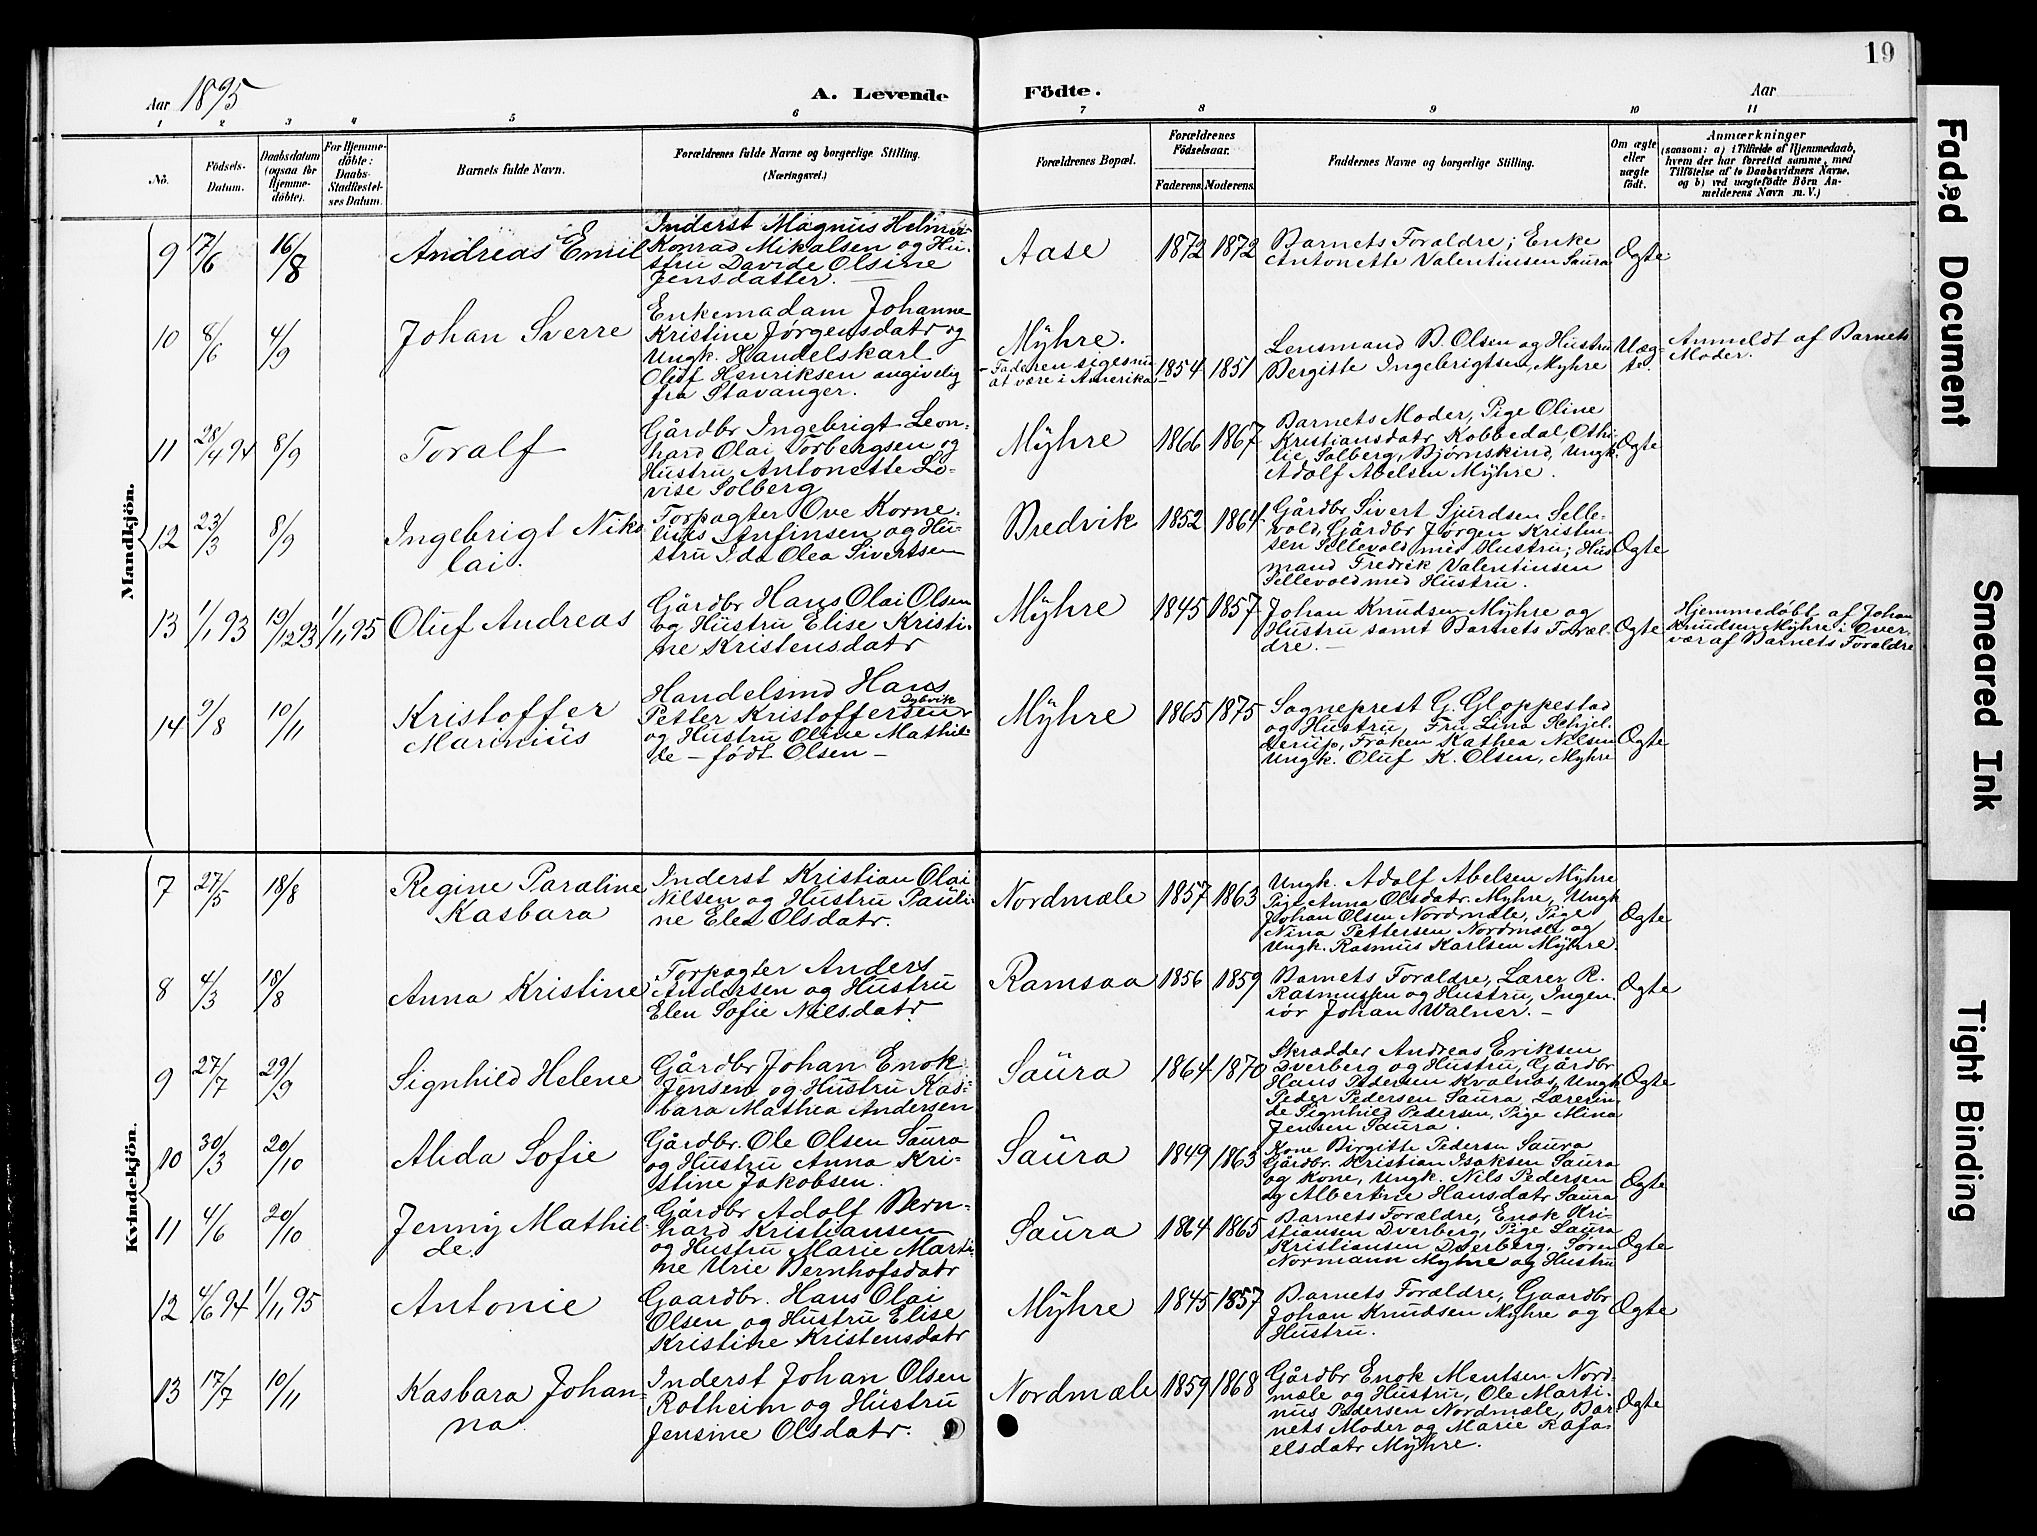 19
Aar 1895
A. Levende Födte.
Aar
1 2 3 4 5 6 7 8 9 10 11
No.
Födsels-
Datum.
Daabsdatum
(ogsaa for
Hjemme-
döbte).
For Hjemme-
döbte:
Daabs-
Stadfæstel-
ses Datum.
Barnets fulde Navn.
Forældrenes fulde Navne og borgerlige Stilling.
(Næringsvei.)
Forældrenes Bopæl.
Forældrenes
Födselsaar.
Faderens. Moderens.
Faddernes Navne og borgerlige Stilling.
Om ægte
eller
uægte
födt.
Anmærkninger
(saasom: a) i Tilfælde af Hjemmedaab,
hvem der har forrettet samme, med
Tilföielse af to Daabsvidners Navne,
og b) ved uægtefödte Börn An-
melderens Navn m. V.)
Mandkjön.
9 7/6 16/8 Andreas Emil
Inderst Magnus Helmer
Konrad Mikalsen og Hu-
stru Davide Olsine
Jensdatter.
Aase 1872 1872
Barnets Foraldre; Enke
Antonette Valentinsen Saura
Ogte
10 8/6 4/9 Johan Sverre
Enkemadam Johanne
Kristine Jørgensdatr og
Ungk. Handelskarl
Oluf Henriksen angivelig
fra Stavanger.
Myhre.
- Faderen siges nu
at være i Amerika - 1854 1851
Lensmand B. Olsen og Hustru
Bergitte Ingebrigtsen, Myhre
Uæg-
te.
Anmeldt af Barnets
Moder.
11 28/4 94 8/9 Toralf
Gårdbr Ingebrigt Leon-
hard Olai Torbergsen og
Hustru Antonette Lo-
vise Solberg
Myhre 1866 1867
Barnets Moder, Pige Oline
Kristiansdatr Kobbedal, Othi
lie Solberg, Bjørnskind, Ungk.
Adolf Abelsen Myhre.
Ogte
12 23/3 8/9 Ingebrigt Niko
lai.
Forpagter Ove Korne-
lius Anfinsen og Hu-
stru Ida Olea Sivertsen
Bredvik 1852 1864
Gårdbr Sivert Sjurdsen Selle-
vold, Gårdbr Jørgen Kristen-
sen Sellevold med Hustru; Hus
mand Fredrik Valentinsen
Sellevold med Hustru.
Ogte
13 1/1 93 19/12 93 1/11 95 Oluf Andreas
Gårdbr Hans Olai Olsen
og Hustru Elise Kristi-
ne Kristensdatr
Myhre 1845 1857
Johan Knudsen Myhre og
Hustru samt Barnets Foræl-
dre. -
Ogte
Hjemmedøbt af Johan
Knudsen Myhre i Over-
vær af Barnets Foraldre
14 9/8 10/11 Kristoffer
Marinius
Handelsmd Hans
Dybvik
Petter Kristoffersen
og Hustru Oline Mathil-
de - født Olsen -
Myhre 1865 1875
Sogneprest G. Gloppestad
og Hustru, Fru Lina Schjel-
derup, Frøken Kathea Nilsen
Ungk. Oluf K. Olsen, Myhre
Ogte
Kvindekjön.
7 27/5 18/8 Regine Paraline
Kasbara
Inderst Kristian Olai
Nilsen og Hustru Pauli-
ne Elea Olsdatr.
Nordmæle 1857 1863
Ungk. Adolf Abelsen Myhre
Pige Anna Olsdatr. Myhre, Ungk
Johan Olsen Nordmæle, Pige
Nina Pettersen Nordmæle og
Ungk. Rasmus Karlsen Myhre.
Ogte
8 4/3 18/8 Anna Kristine
Forpagter Anders
Andersen og Hustru
Elen Sofie Nilsdatr.
Ramsaa 1856 1859
Barnets Foraldre, Lærer R.
Rasmussen og Hustru, Ingen-
iør Johan Walner. -
Ogte
9 27/7 29/9 Signhild Helene
Gårdbr Johan Enok
Jensen og Hustru Kas-
bara Mathea Andersen
Saura 1864 1870
Skrædder Andreas Eriksen
Dverberg og Hustru, Gårdbr
Hans Pedersen Kvalnes, Ungk
Peder Pedersen Saura, Lærerin
de Signhild Pedersen, Pige Mina
Jensen Saura.
Ogte
10 30/3 20/10 Alida Sofie
Gårdbr. Ole Olsen Saura
og Hustru Anna Kri-
stine Jakobsen.
Saura 1849 1863
Kone Birgitte Pedersen Saura
Gårdbr. Kristian Isaksen Saura
og Kone, Ungk. Nils Pedersen
og Albertine Hansdatr Saura
Ogte
11 4/6 20/10 Jenny Mathil-
de.
Gårdbr Adolf Bern-
hard Kristiansen
og Hustru Marie Marti-
ne Urie Bernhofsdatr
Saura 1864 1865
Barnets Foraldre, Enok Kri-
stiansen Dverberg, Pige Laura
Kristiansen Dverberg. Søren
Normann Myhre og Hustru
Ogte
12 4/6 94 1/11 95 Antonie
Gaardbr. Hans Olai
Olsen og Hustru Elise
Kristine Kristensdatr
Myhre 1845 1857
Barnets Foraldre, Gaardbr
Johan Knudsen Myhre og
Hustru.
Ogte
13 17/7 10/11 Kasbara Johan-
na.
Inderst Johan Olsen
Rotheim og Hustru
Jensine Olsdatr.
Nordmæle 1859 1868
Gårdbr Enok Mentsen Nord-
mæle og Hustru, Ole Marti-
nus Pedersen Nordmæle, Bar
nets Moder og Marie Rafa-
elsdatr Myhre.
Ogte
Faded Document
Smeared Ink
Tight Binding